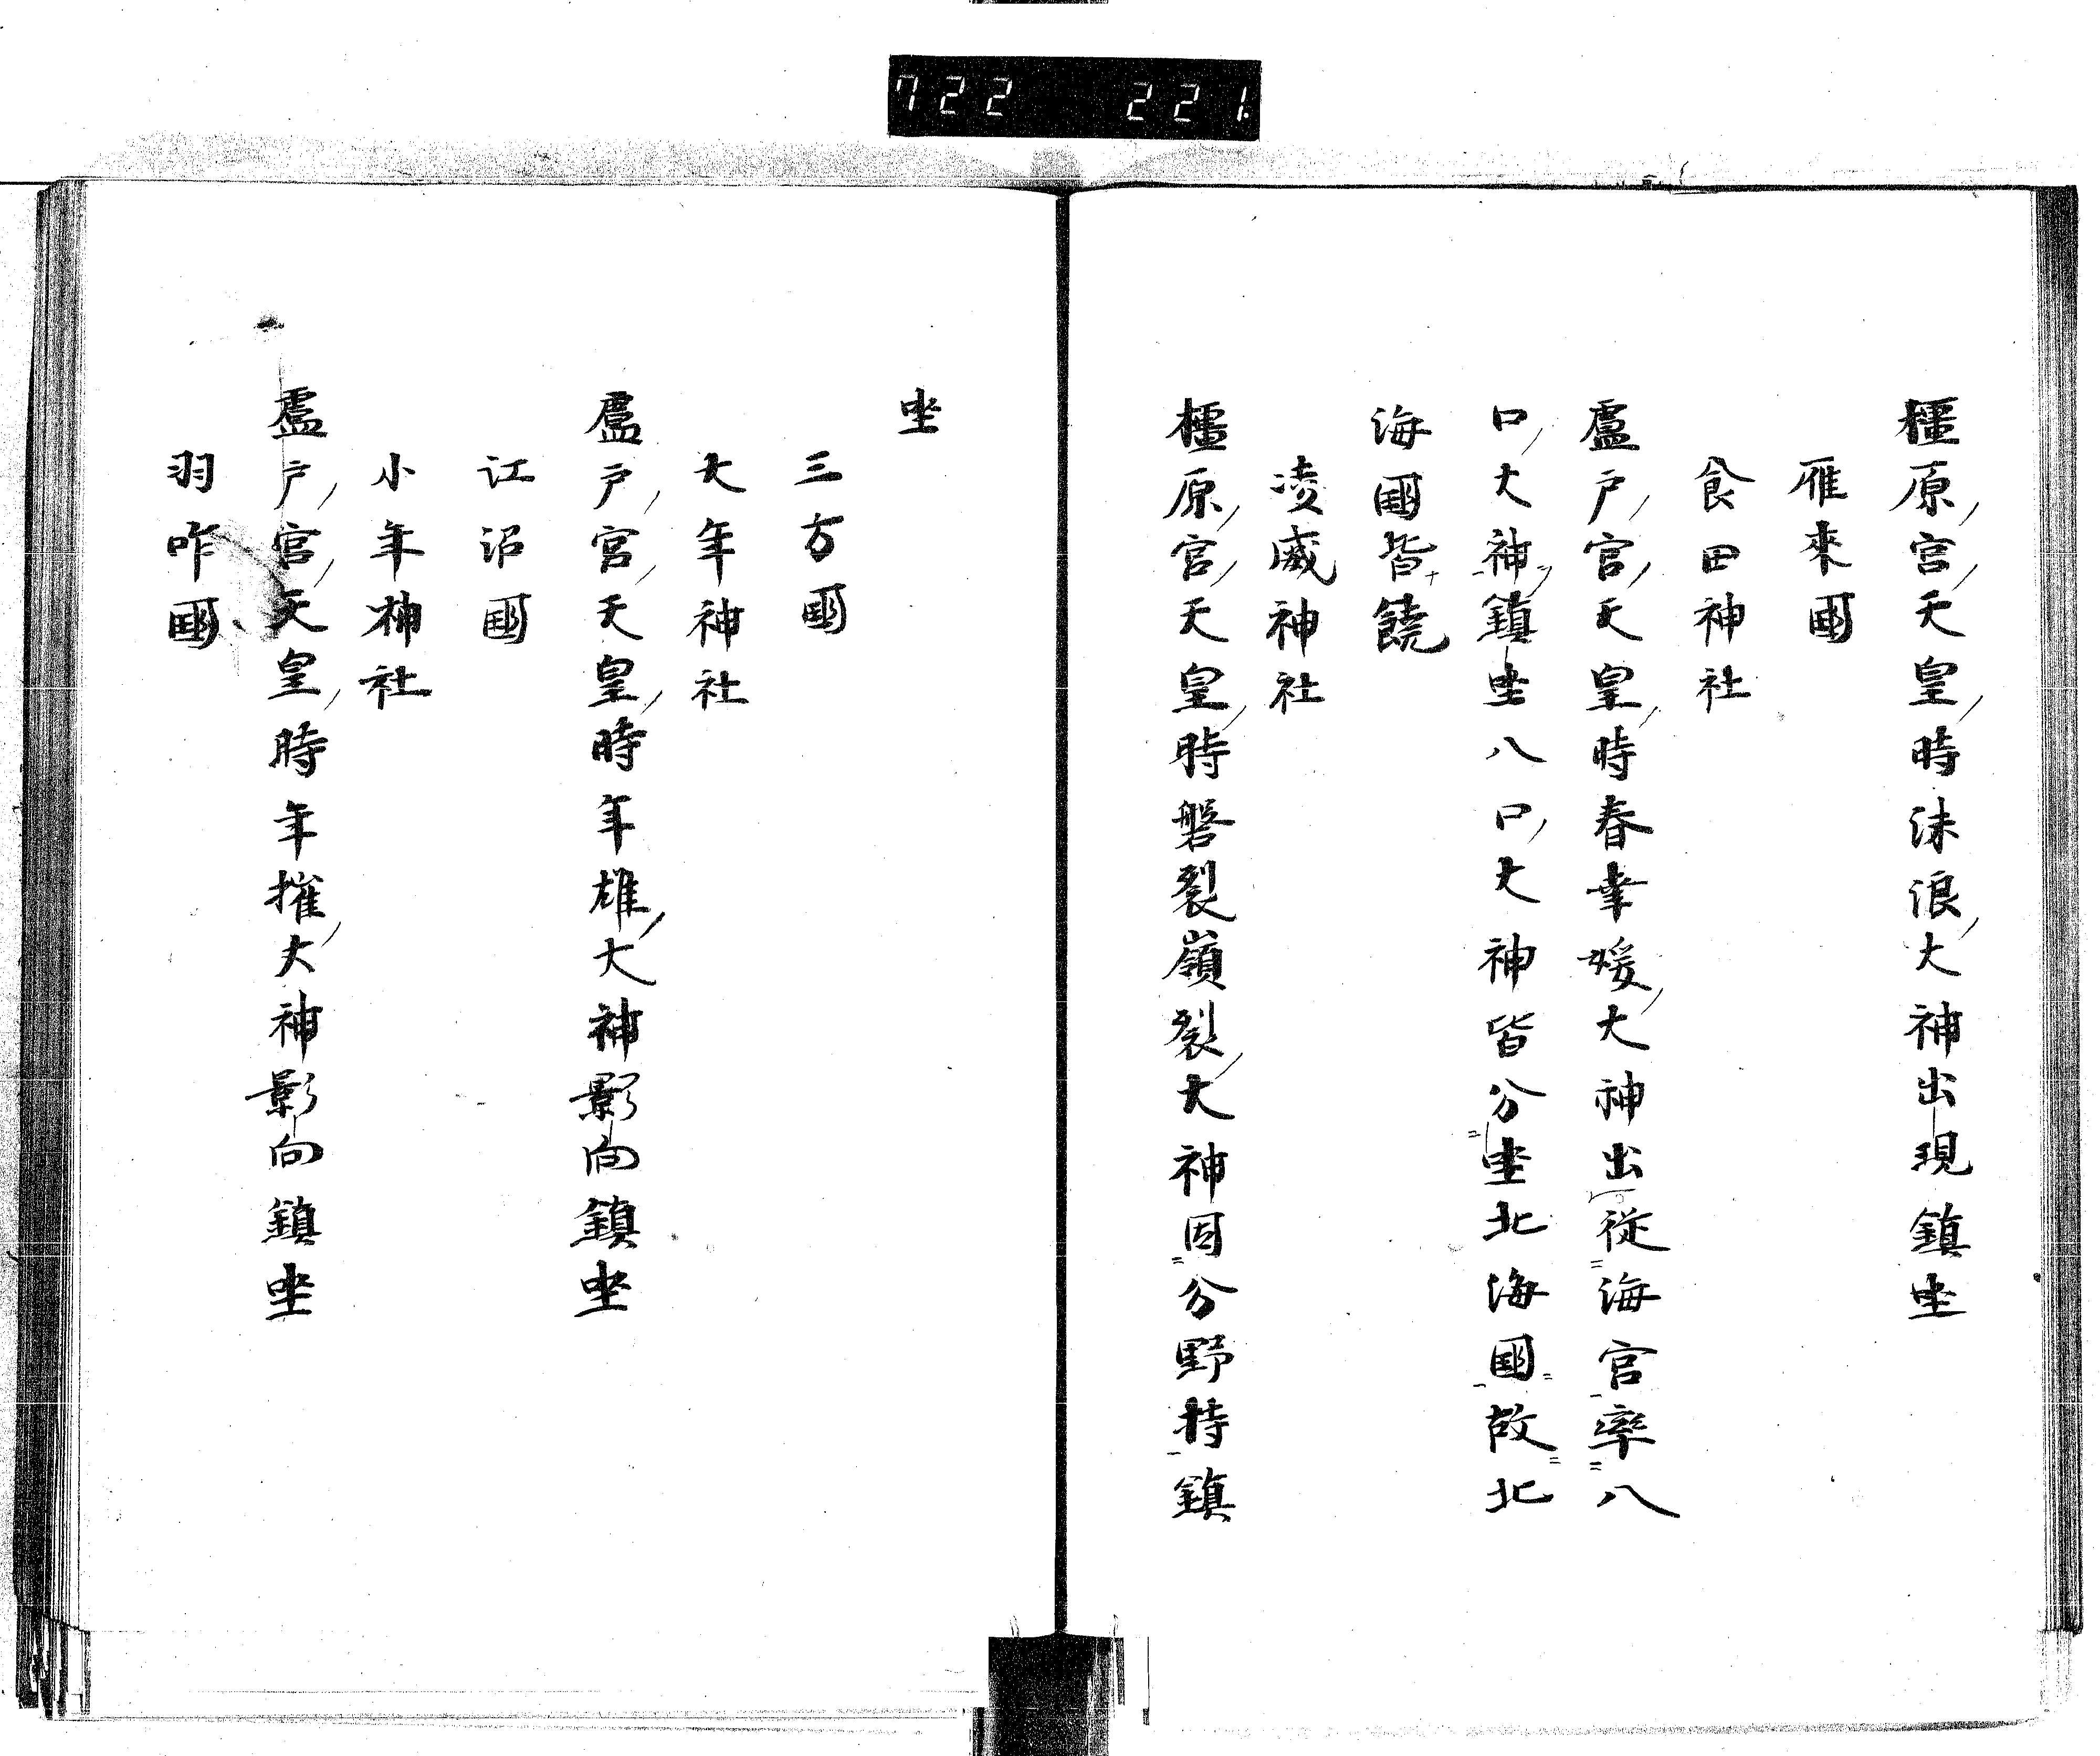 722 221
橿原ノ宮ノ天皇ノ時沫浪ノ大神出現鎮坐
雁來國
食田神社
盧戸ノ宮ノ天皇ノ時春幸媛ノ大神出従海宮率八
口ノ大神ノ鎮坐八口ノ大神皆分坐北海國故北
海國皆饒
凌威神社
橿原ノ宮ノ天皇ノ時磐裂嶺裂ノ大神因分野持鎮
坐
三方國
大年神社
盧戸ノ宮ノ天皇ノ時年雄ノ大神影向鎮坐
江沼國
小年神社
盧戸ノ宮ノ天皇ノ時年摧ノ大神影向鎮坐
羽咋國